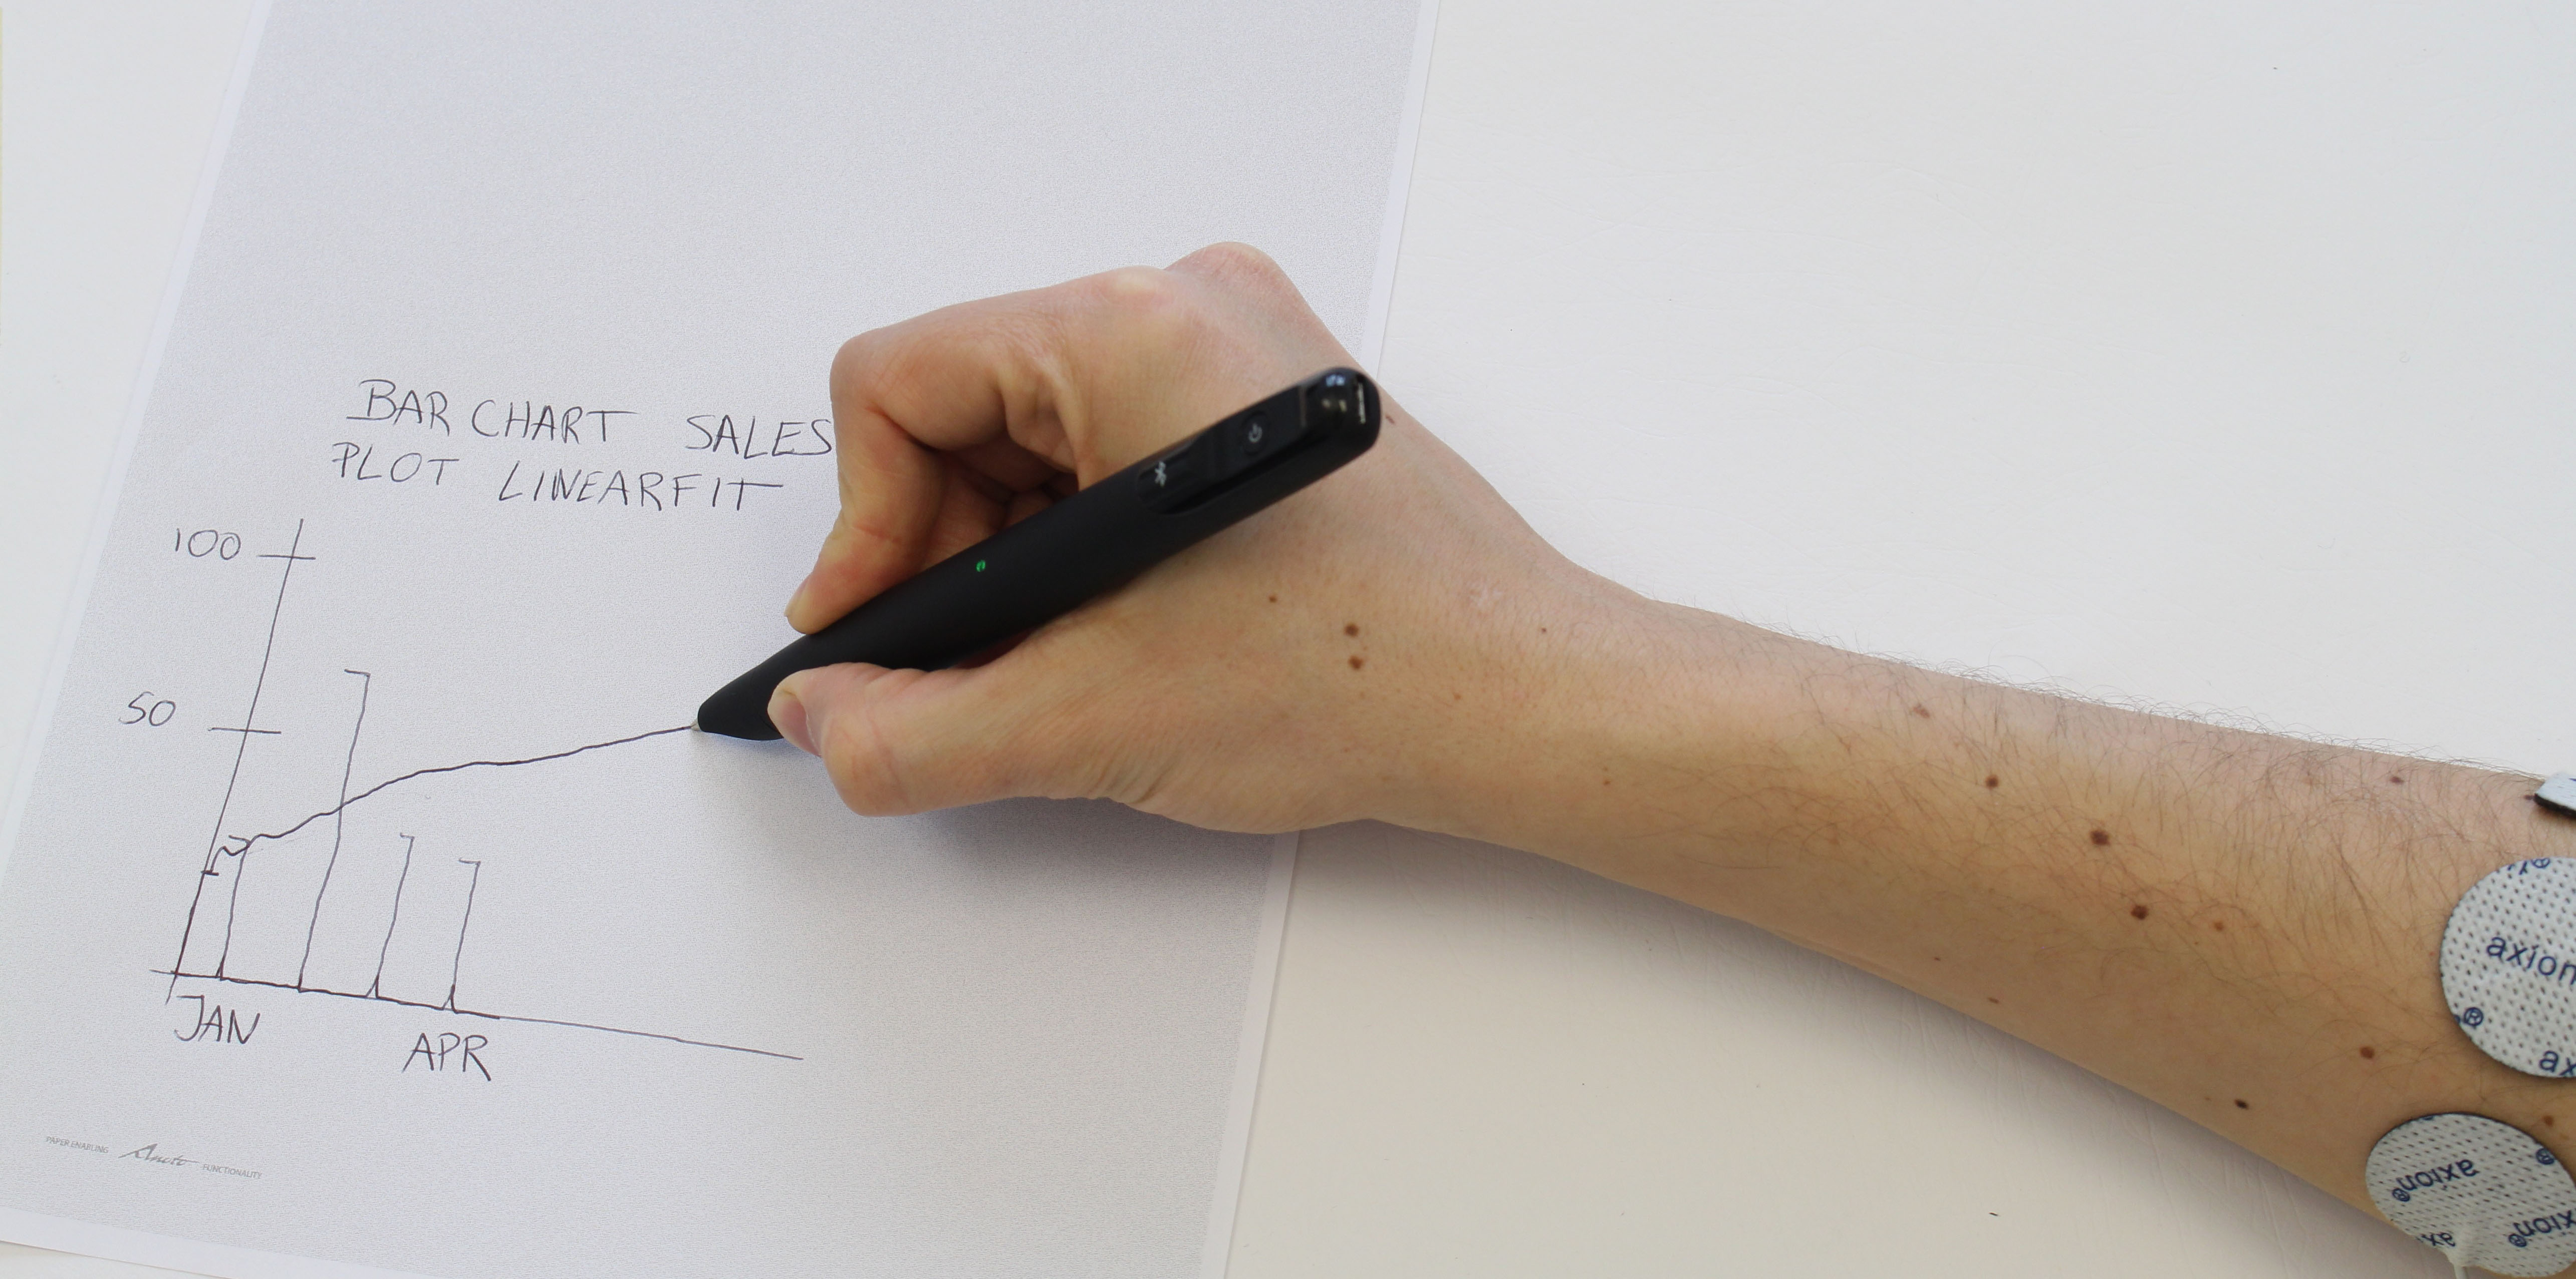 BAR CHART SALES
PLOT LINEARFIT
100
50
JAN
APR
PAPER ENABLING Anoto FUNCTIONALITY
axion
®
ax
axion®
®
xion
axe